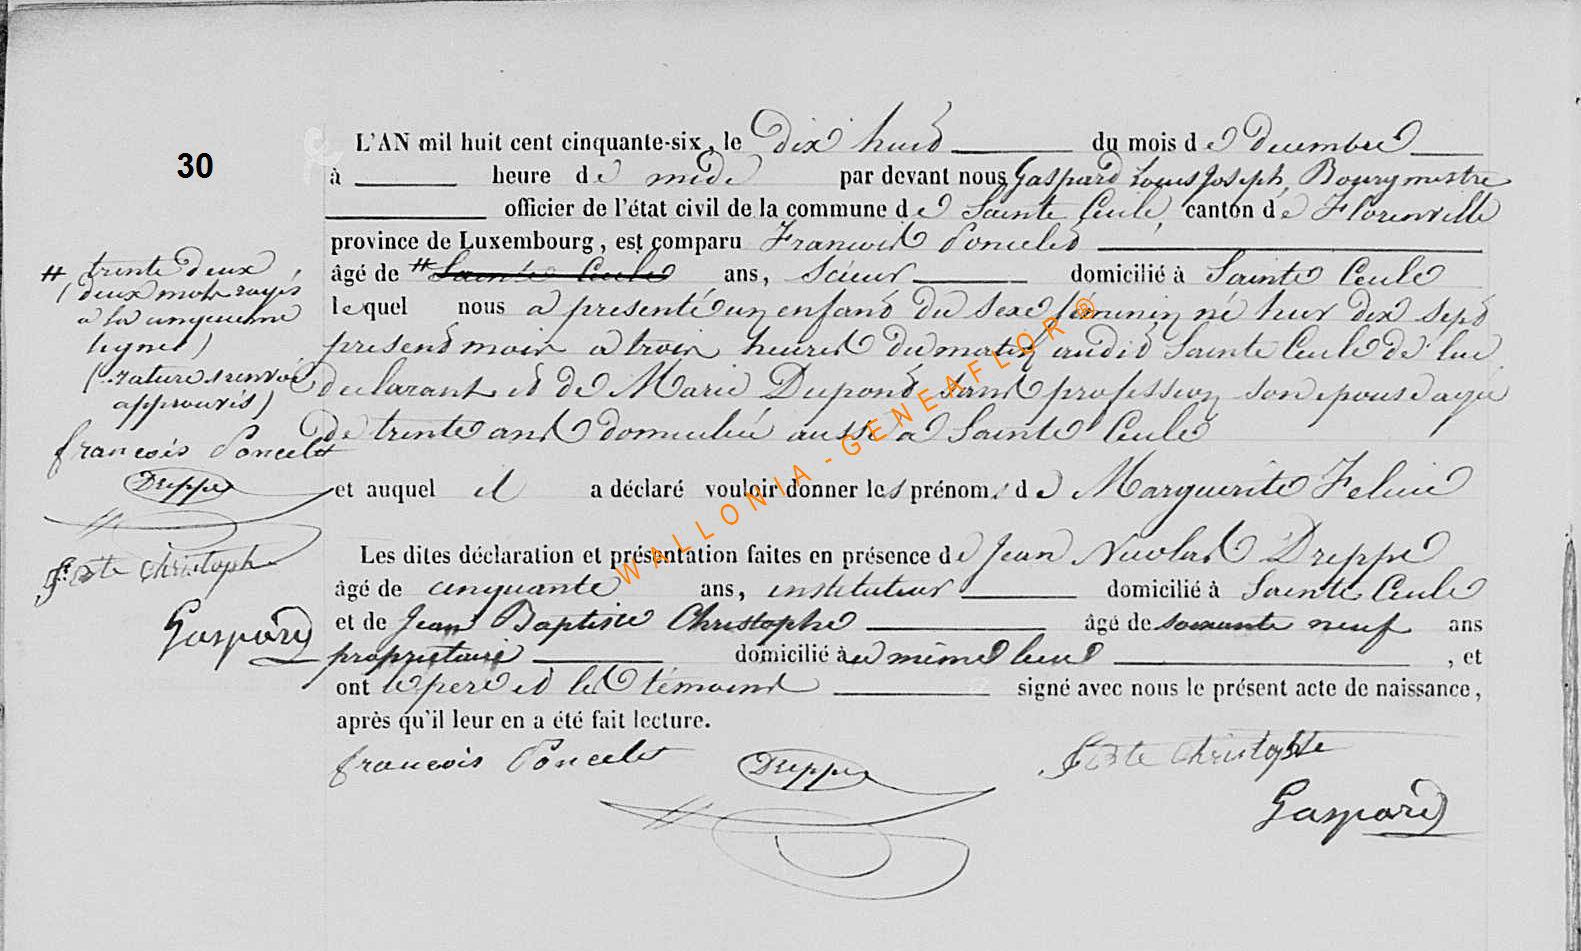 30
L'AN mil huit cent cinquante-six, le dix huit du mois de decembre
à heure de midi par devant nous Gaspard Louis Joseph, Bourgmestre
officier de l'état civil de la commune de Sainte Cecile, canton de Florenville
province de Luxembourg, est comparu Francois Poncelet
âgé de # Sainte Cecile ans, Scieur domicilié à Sainte Cecile
lequel nous a presenté un enfant du sexe féminin né hier dix sept
present mois a trois heures du matin audit Sainte Cecile de lui
declarant et de Marie Dupont sans profession son epouse agée
de trente ans domiciliée aussi a Sainte Cecile
et auquel il a déclaré vouloir donner les prénoms de Marguerite Felicie
Les dites déclaration et présentation faites en présence de Jean Nicolas Dreppe
âgé de cinquante ans, instituteur domicilié à Sainte Cecile
et de Jean Baptiste Christophe âgé de soixante neuf ans
propriétaire domicilié à même lieu , et
ont le pere et les témoins signé avec nous le présent acte de naissance,
après qu'il leur en a été fait lecture.
francois Poncelet Dreppe J Bte Christophe
Gaspard
# trente deux
(deux mots rayés
a la cinquieme
ligne)
(rature & renvoi
approuvés)
francois Poncelet
Dreppe
J. Bte Christophe
Gaspard
WALLONIA-GENEAFLOR ®